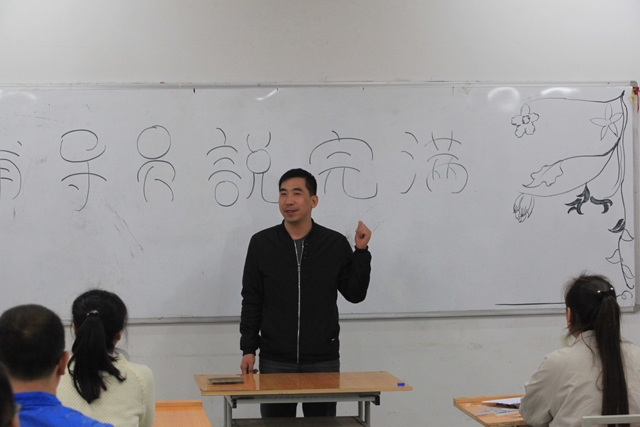 导员說完滿